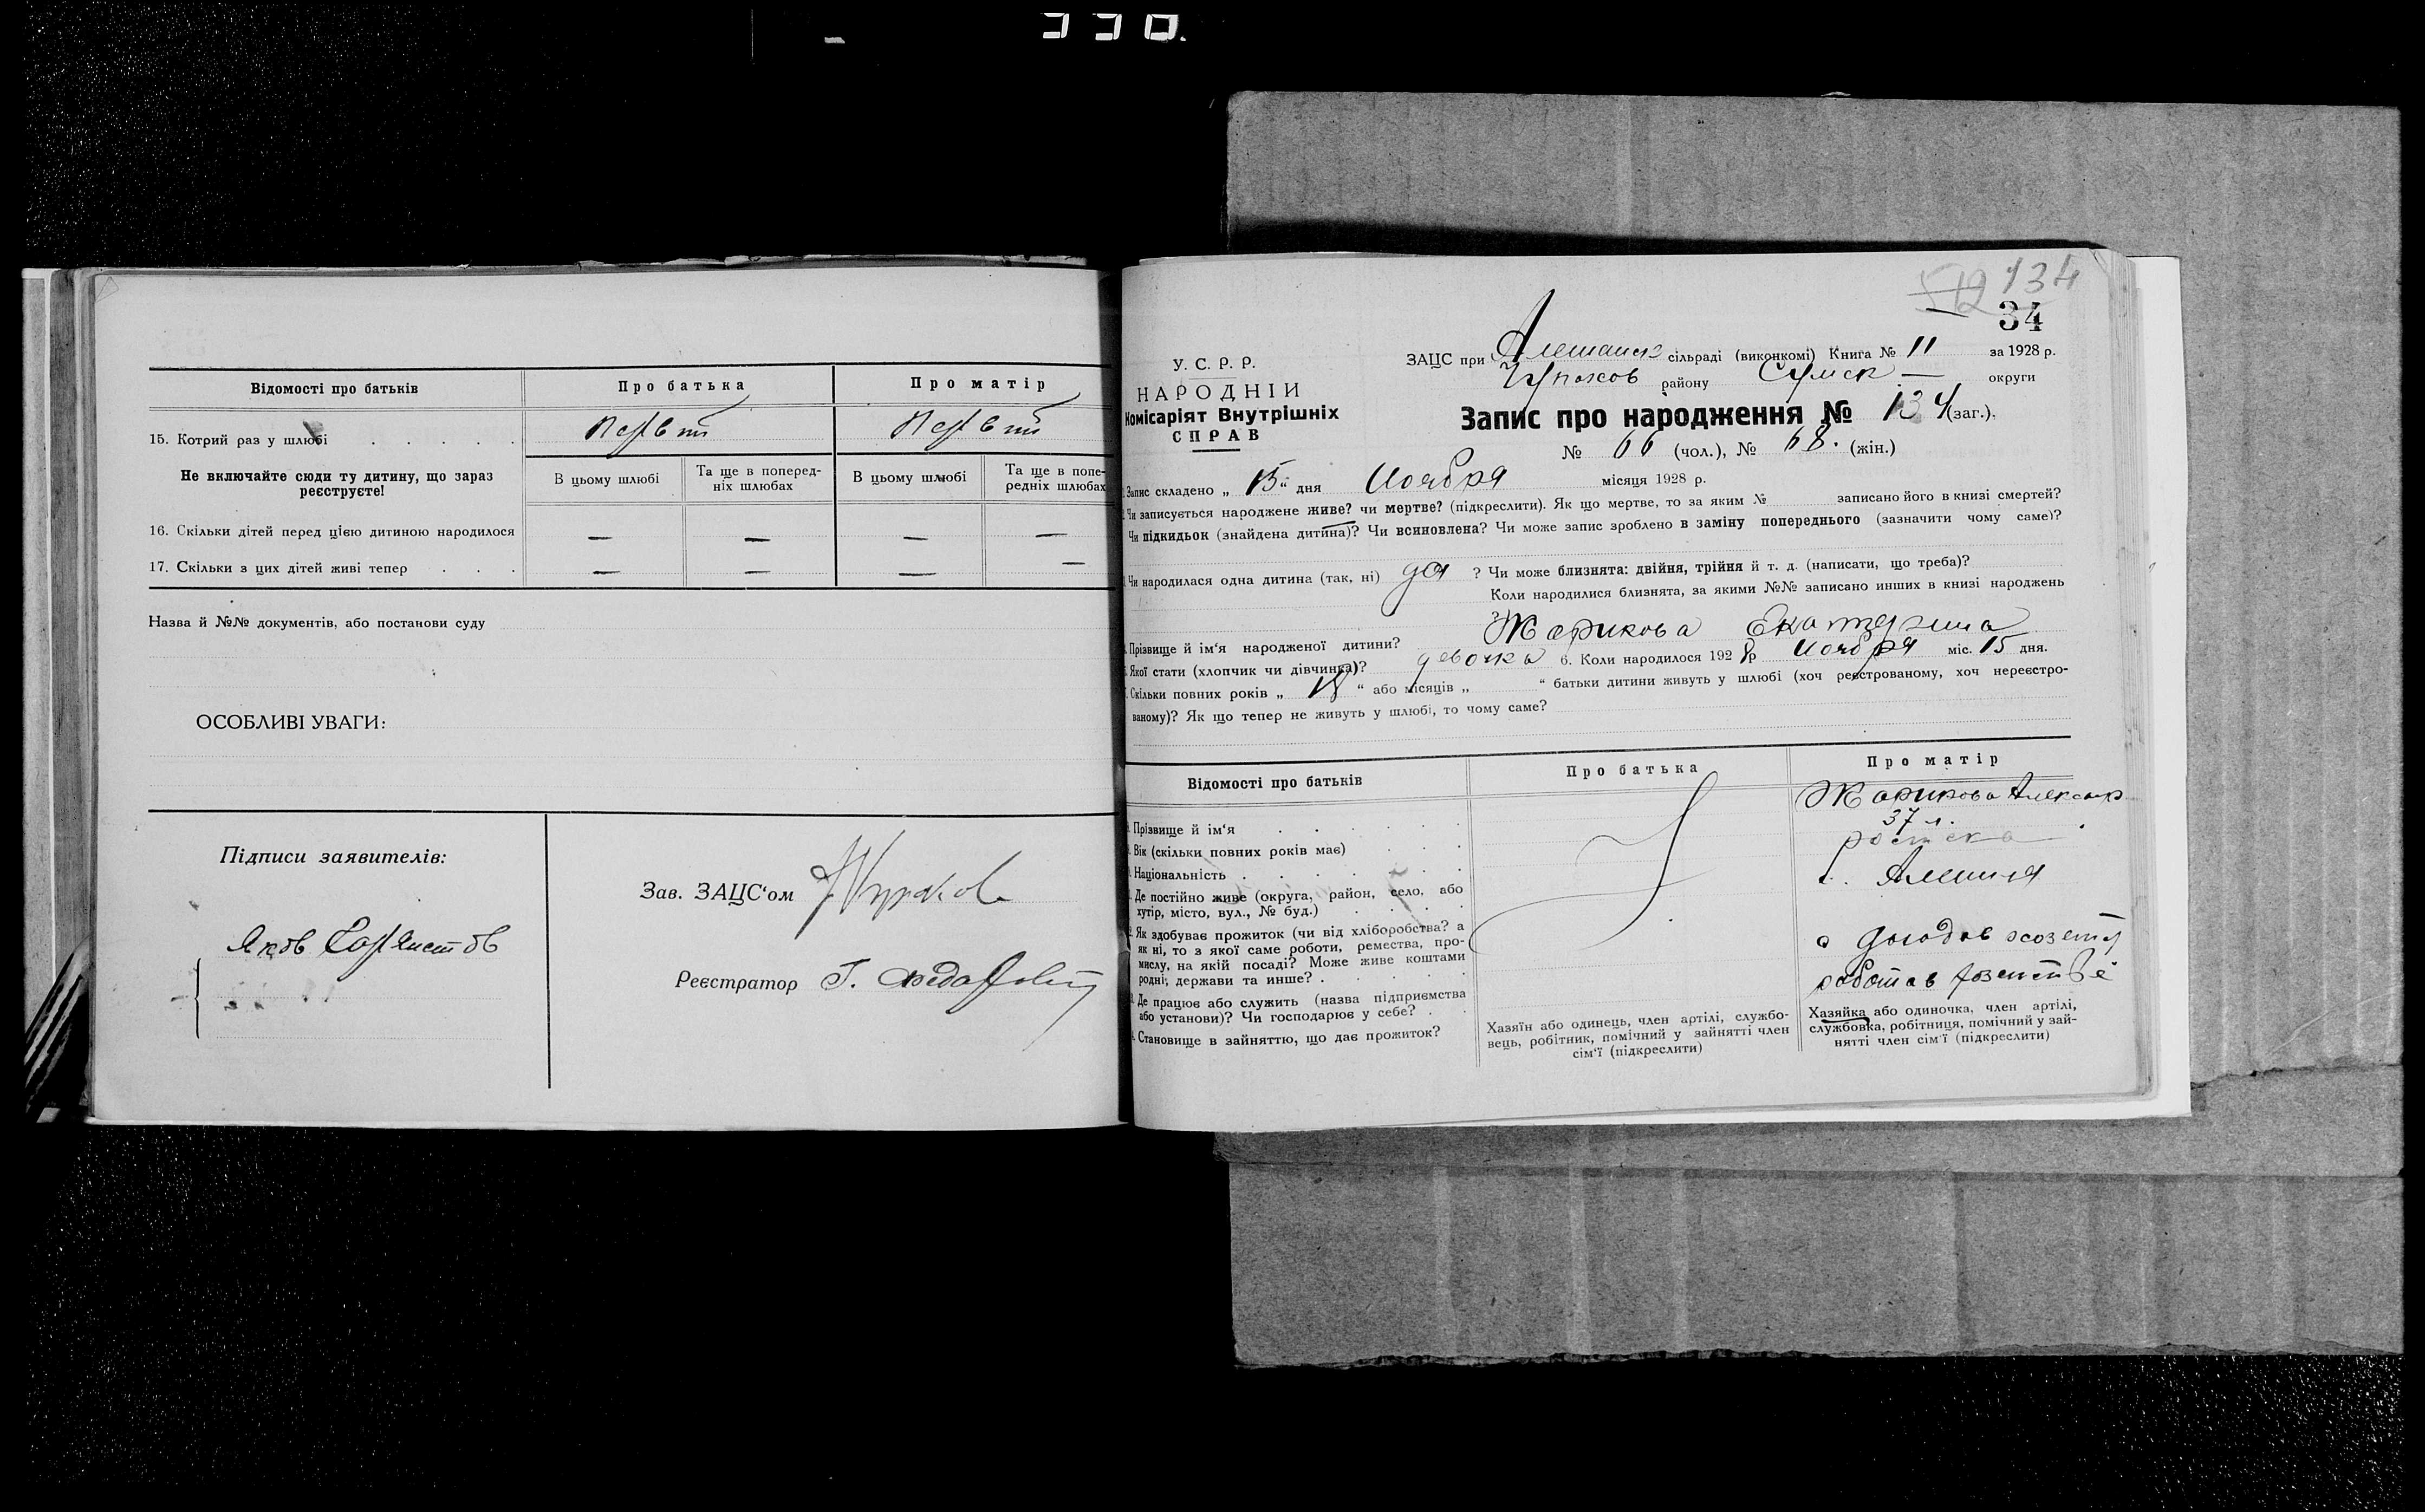 330.
Відомості про батьків
Про батька
Про матір
15. Котрий раз у шлюбі . . . . .
Первый
Первый
Не включайте сюди ту дитину, що зараз
реєструєте!
В цьому шлюбі
Та ще в поперед-
ніх шлюбах
В цьому шлюбі
Та ще в попе-
редніх шлюбах
16. Скільки дітей перед цією дитиною народилося
— — — —
17. Скільки з цих дітей живі тепер . . .
— — — —
Назва й №№ документів, або постанови суду
ОСОБЛИВІ УВАГИ:
Підписи заявителів:
Яков
Зав. ЗАЦС'ом
Реєстратор
134
34
У. С. Р. Р.
НАРОДНІЙ
Комісаріят Внутрішніх
СПРАВ
ЗАЦС при Алешанск сільраді (виконкомі) Книга № 11 за 1928 р.
району Сумск — округи
Запис про народження № 134 (заг.).
№ 66 (чол.), № 68. (жін.)
Запис складено „ 15 " дня Ноября місяця 1928 р.
Чи записується народжене живе? чи мертве? (підкреслити). Як що мертве, то за яким № записано його в книзі смертей?
Чи підкидьок (знайдена дитина)? Чи всиновлена? Чи може запис зроблено в заміну попереднього (зазначити чому саме)?
Чи народилася одна дитина (так, ні) да ? Чи може близнята: двійня, трійня й т. д. (написати, що треба)?
Коли народилися близнята, за якими №№ записано инших в книзі народжень
?
Прізвище й ім'я народженої дитини? Жарикова Екатерина
Якої стати (хлопчик чи дівчинка)? девочка 6. Коли народилося 1928 р Ноября міс. 15 дня.
Скільки повних років „ 18 " або місяців „ " батьки дитини живуть у шлюбі (хоч реєстрованому, хоч нереєстро-
ваному)? Як що тепер не живуть у шлюбі, то чому саме?
Відомості про батьків
Про батька
Про матір
Прізвище й ім'я . . . . .
Жарикова Александр
Вік (скільки повних років має) . . .
37 л.
Національність . . . . . .
Де постійно живе (округа, район, село, або
хутір, місто, вул., № буд.) . . . .
с. Алешня
Як здобуває прожиток (чи від хліборобства? а
як ні, то з якої саме роботи, ремества, про-
мислу, на якій посаді? Може живе коштами
родні, держави та инше? . . . . .
Де працює або служить (назва підприємства
або установи)? Чи господарює у себе? . .
Становище в зайняттю, що дає прожиток?
Хазяїн або одинець, член артілі, службо-
вець, робітник, помічний у зайнятті член
сім'ї (підкреслити)
Хазяйка або одиночка, член артілі,
службовка, робітниця, помічний у зай-
нятті член сім'ї (підкреслити)